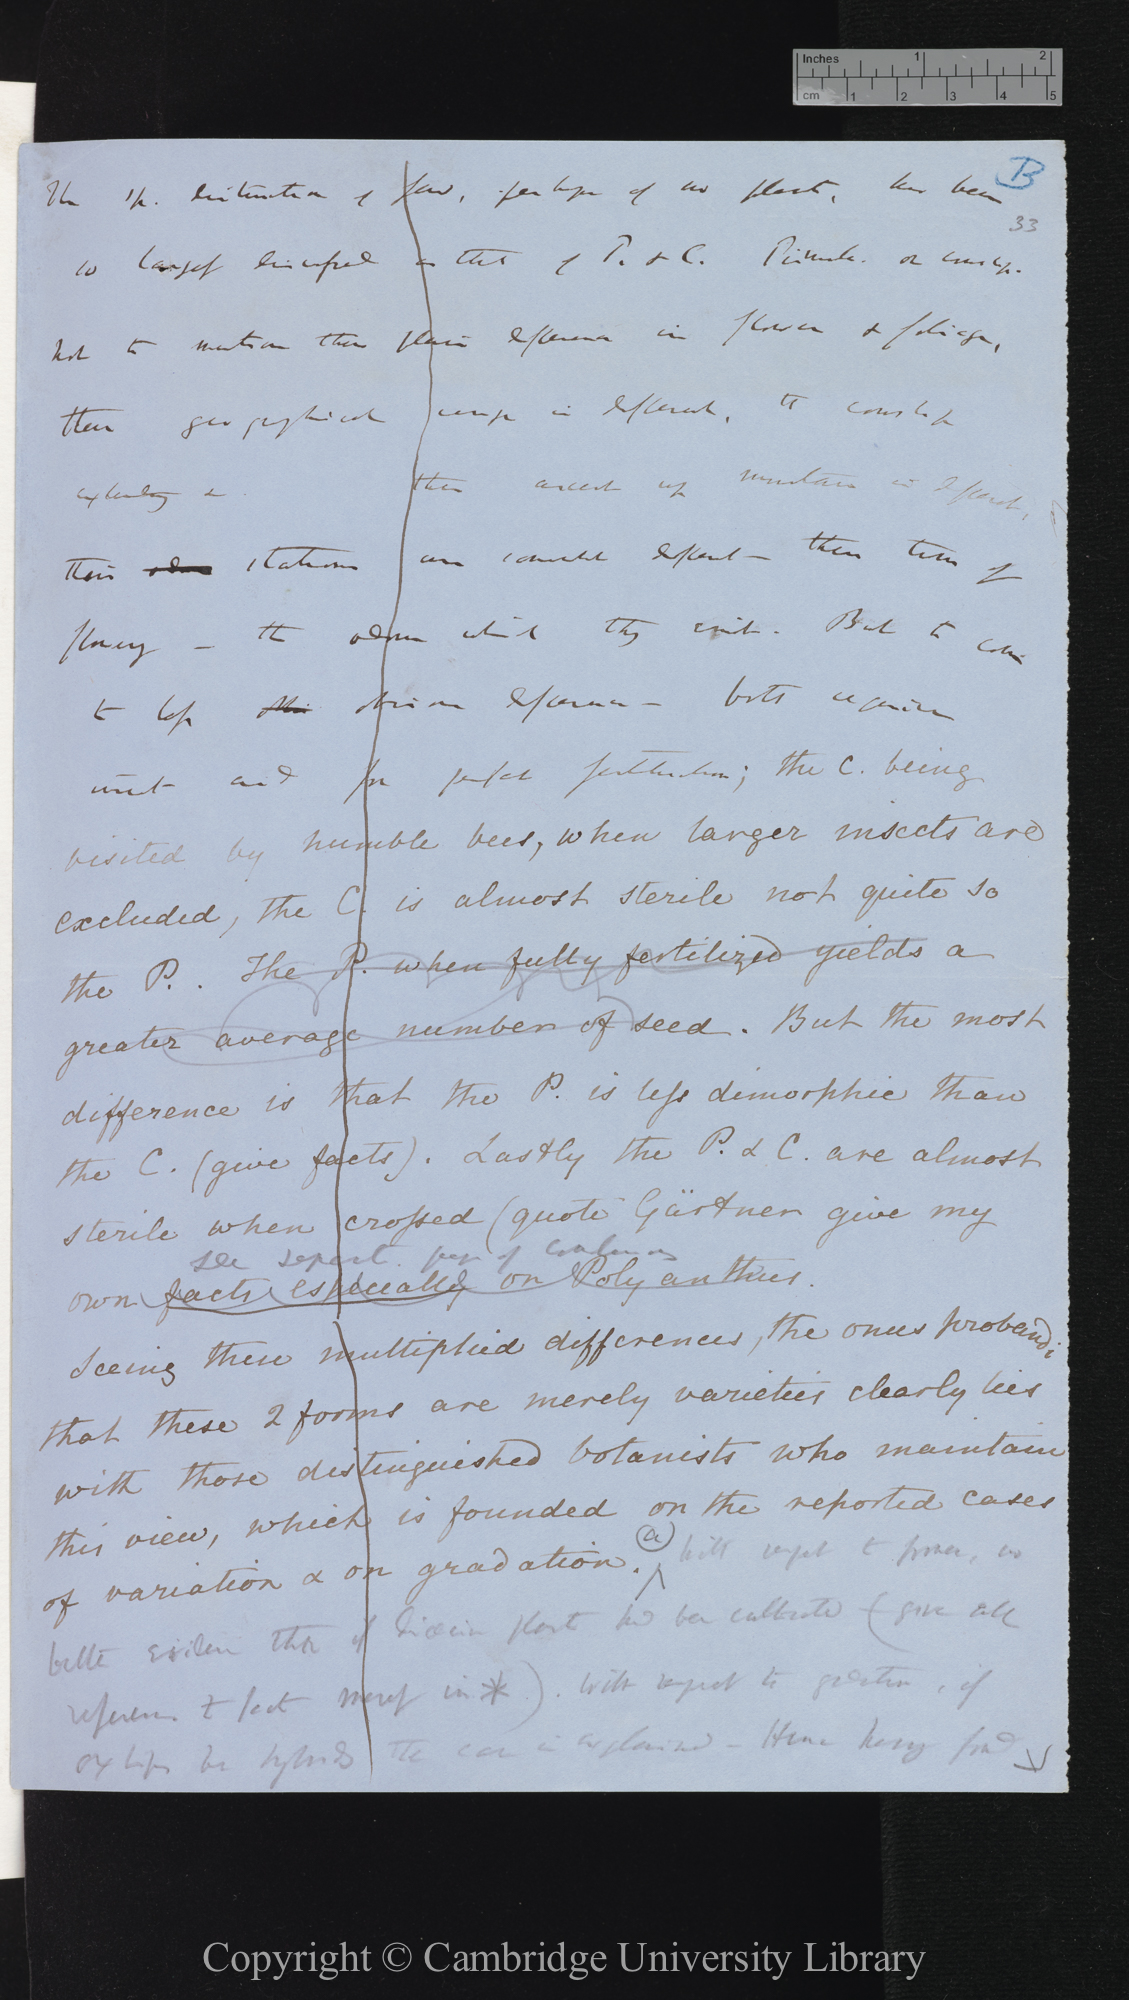 Inches 1 2
cm 1 2 3 4 5
B
The sp. distinction of few, perhaps of no plant, has been
33
so largely discussed as that of P. & C. Primula. or cowslip.
Not to mention their plain difference in flower & foliage,
their geographical range is different, the cowslip
extending their ascent up mountain is different,
their stations are somewhat different — their time of
flowering — the odour which they emit. But to come
to less obvious difference — both require
insect aid for perfect fertilisation; the C. being
visited by humble bees, when larger insects are
excluded, the C. is almost sterile not quite so
the P. . The P. when fully fertilized yields a
greater average number of seed. But the most
difference is that the P. is less dimorphic than
the C. (give facts). Lastly the P. & C. are almost
sterile when crossed (quote Gärtner give my
see separate page of
own facts especially on Polyanthus.
Seeing these multiplied differences, the onus probandi
that these 2 forms are merely varieties clearly lies
with those distinguished botanists who maintain
this view, which is founded on the reported cases
of variation & on gradation. (a) With respect to former, no
better evidence than if plant had been cultivated (give all
reference & fact in *). With respect to gradation, if
oxlips be hybrids the case is explained — Hence having found
Copyright © Cambridge University Library